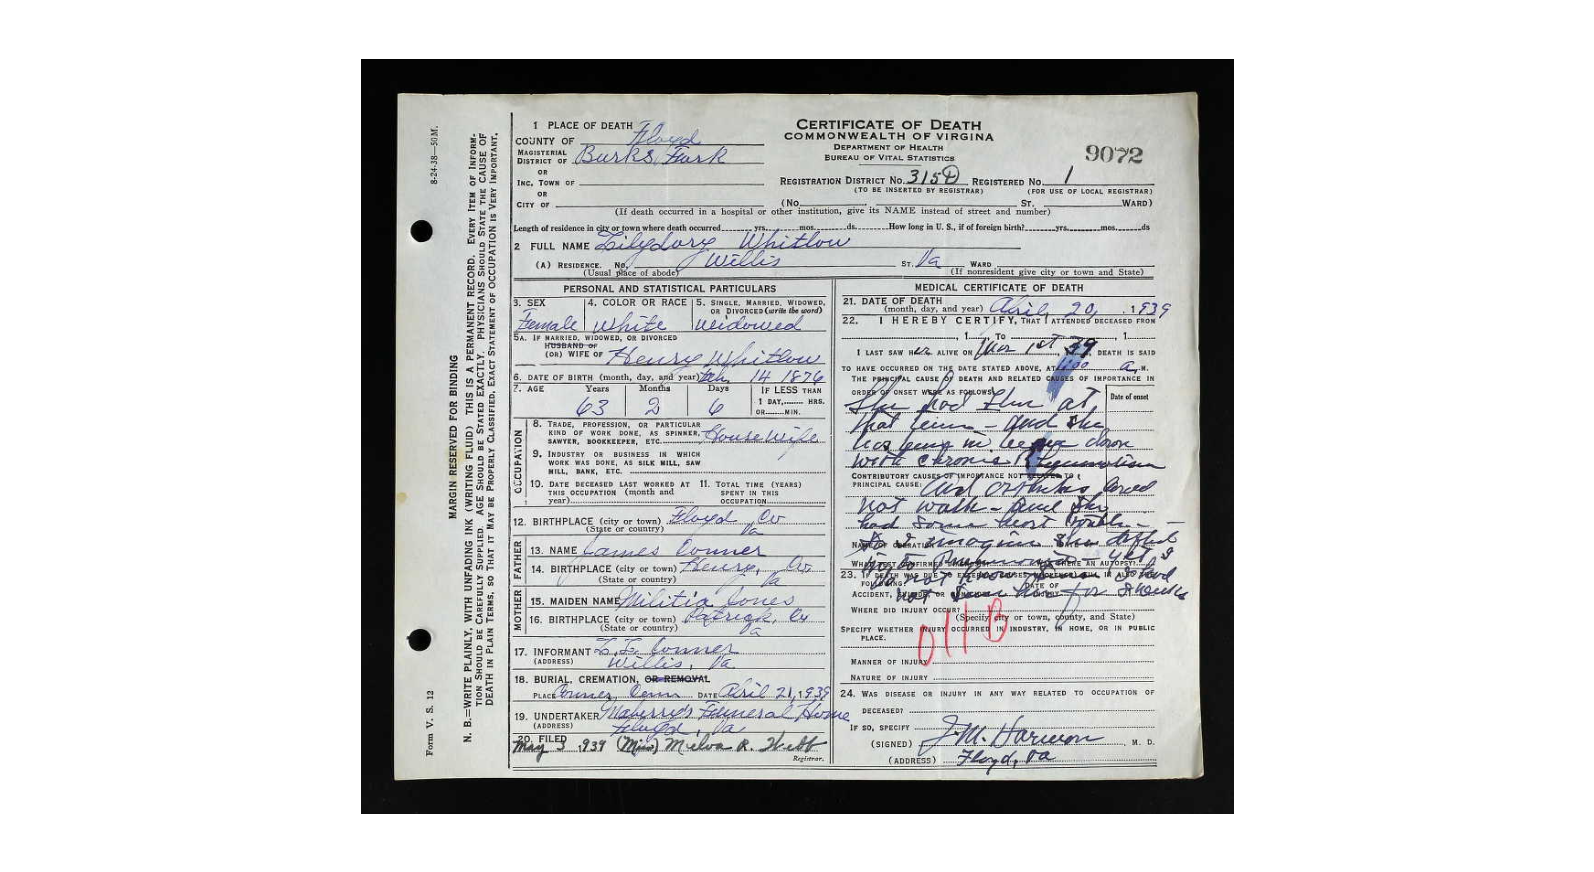 8-24-38—50M.
MARGIN RESERVED FOR BINDING
N. B.=WRITE PLAINLY, WITH UNFADING INK (WRITING FLUID) THIS IS A PERMANENT RECORD. EVERY ITEM OF INFORM-
TION SHOULD BE CAREFULLY SUPPLIED. AGE SHOULD BE STATED EXACTLY. PHYSICIANS SHOULD STATE THE CAUSE OF
DEATH IN PLAIN TERMS, SO THAT IT MAY BE PROPERLY CLASSIFIED. EXACT STATEMENT OF OCCUPATION IS VERY IMPORTANT.
Form V. S. 12
CERTIFICATE OF DEATH
COMMONWEALTH OF VIRGINIA
DEPARTMENT OF HEALTH
BUREAU OF VITAL STATISTICS
9072
1 PLACE OF DEATH
COUNTY OF Floyd
MAGISTERIAL DISTRICT OF Burks Fork
OR
INC. TOWN OF
OR
CITY OF
REGISTRATION DISTRICT NO. 315D REGISTERED NO. 1
(TO BE INSERTED BY REGISTRAR) (FOR USE OF LOCAL REGISTRAR)
(No. ST. WARD)
(If death occurred in a hospital or other institution, give its NAME instead of street and number)
Length of residence in city or town where death occurred yrs. mos. ds. How long in U. S., if of foreign birth? yrs. mos. ds
2 FULL NAME Whitlow
(A) RESIDENCE. No. Willis ST. Va WARD
(Usual place of abode) (If nonresident give city or town and State)
PERSONAL AND STATISTICAL PARTICULARS
3. SEX Female
4. COLOR OR RACE White
5. SINGLE, MARRIED, WIDOWED, OR DIVORCED (write the word) Widowed
5A. IF MARRIED, WIDOWED, OR DIVORCED
HUSBAND OF
(OR) WIFE OF Henry Whitlow
6. DATE OF BIRTH (month, day, and year) Feb. 14 1876
7. AGE Years 63 Months 2 Days 6 IF LESS THAN 1 DAY, HRS. OR MIN.
OCCUPATION
8. TRADE, PROFESSION, OR PARTICULAR KIND OF WORK DONE, AS SPINNER, SAWYER, BOOKKEEPER, ETC. House Wife
9. INDUSTRY OR BUSINESS IN WHICH WORK WAS DONE, AS SILK MILL, SAW MILL, BANK, ETC.
10. DATE DECEASED LAST WORKED AT THIS OCCUPATION (month and year)
11. TOTAL TIME (YEARS) SPENT IN THIS OCCUPATION
12. BIRTHPLACE (city or town) Floyd Co
(State or country) Va
FATHER
13. NAME James Conner
14. BIRTHPLACE (city or town) Henry, Co.
(State or country) Va
MOTHER
15. MAIDEN NAME Militia Jones
16. BIRTHPLACE (city or town) Patrick, Co
(State or country) Va
17. INFORMANT Conner
(ADDRESS) Willis, Va
18. BURIAL, CREMATION, OR REMOVAL
PLACE Conner Cem DATE April 21, 1939
19. UNDERTAKER Maberry's Funeral Home
(ADDRESS) Floyd, Va
20. FILED May 3, 1939 (Miss) Melva R. Webb
Registrar.
MEDICAL CERTIFICATE OF DEATH
21. DATE OF DEATH
(month, day, and year) April 20, 1939
22. I HEREBY CERTIFY, THAT I ATTENDED DECEASED FROM
, 1 , TO , 1
I LAST SAW her ALIVE ON Mar 1st 39, DEATH IS SAID
TO HAVE OCCURRED ON THE DATE STATED ABOVE, AT a. M.
THE PRINCIPAL CAUSE OF DEATH AND RELATED CAUSES OF IMPORTANCE IN
ORDER OF ONSET WERE AS FOLLOWS:
Date of onset
She had Flu at
that time - and she
has been down
with chronic
CONTRIBUTORY CAUSES OF IMPORTANCE NOT RELATED TO
PRINCIPAL CAUSE:
and
not walk - and she
had some heart trouble -
I imagine she
NAME OF OPERATION
WHAT TEST CONFIRMED THERE AN AUTOPSY?
Pneumonia - yet I
do not know I had
not seen her for 3 weeks
23. IF DEATH WAS DUE TO EXTERNAL CAUSES (VIOLENCE) FILL IN ALSO FOLLOWING:
ACCIDENT, SUICIDE, OR DATE OF INJURY
WHERE DID INJURY OCCUR?
(Specify city or town, county, and State)
SPECIFY WHETHER INJURY OCCURRED IN INDUSTRY, IN HOME, OR IN PUBLIC PLACE.
011B
MANNER OF INJURY
NATURE OF INJURY
24. WAS DISEASE OR INJURY IN ANY WAY RELATED TO OCCUPATION OF DECEASED?
IF SO, SPECIFY
(SIGNED) J. M. Harmon, M. D.
(ADDRESS) Floyd, Va